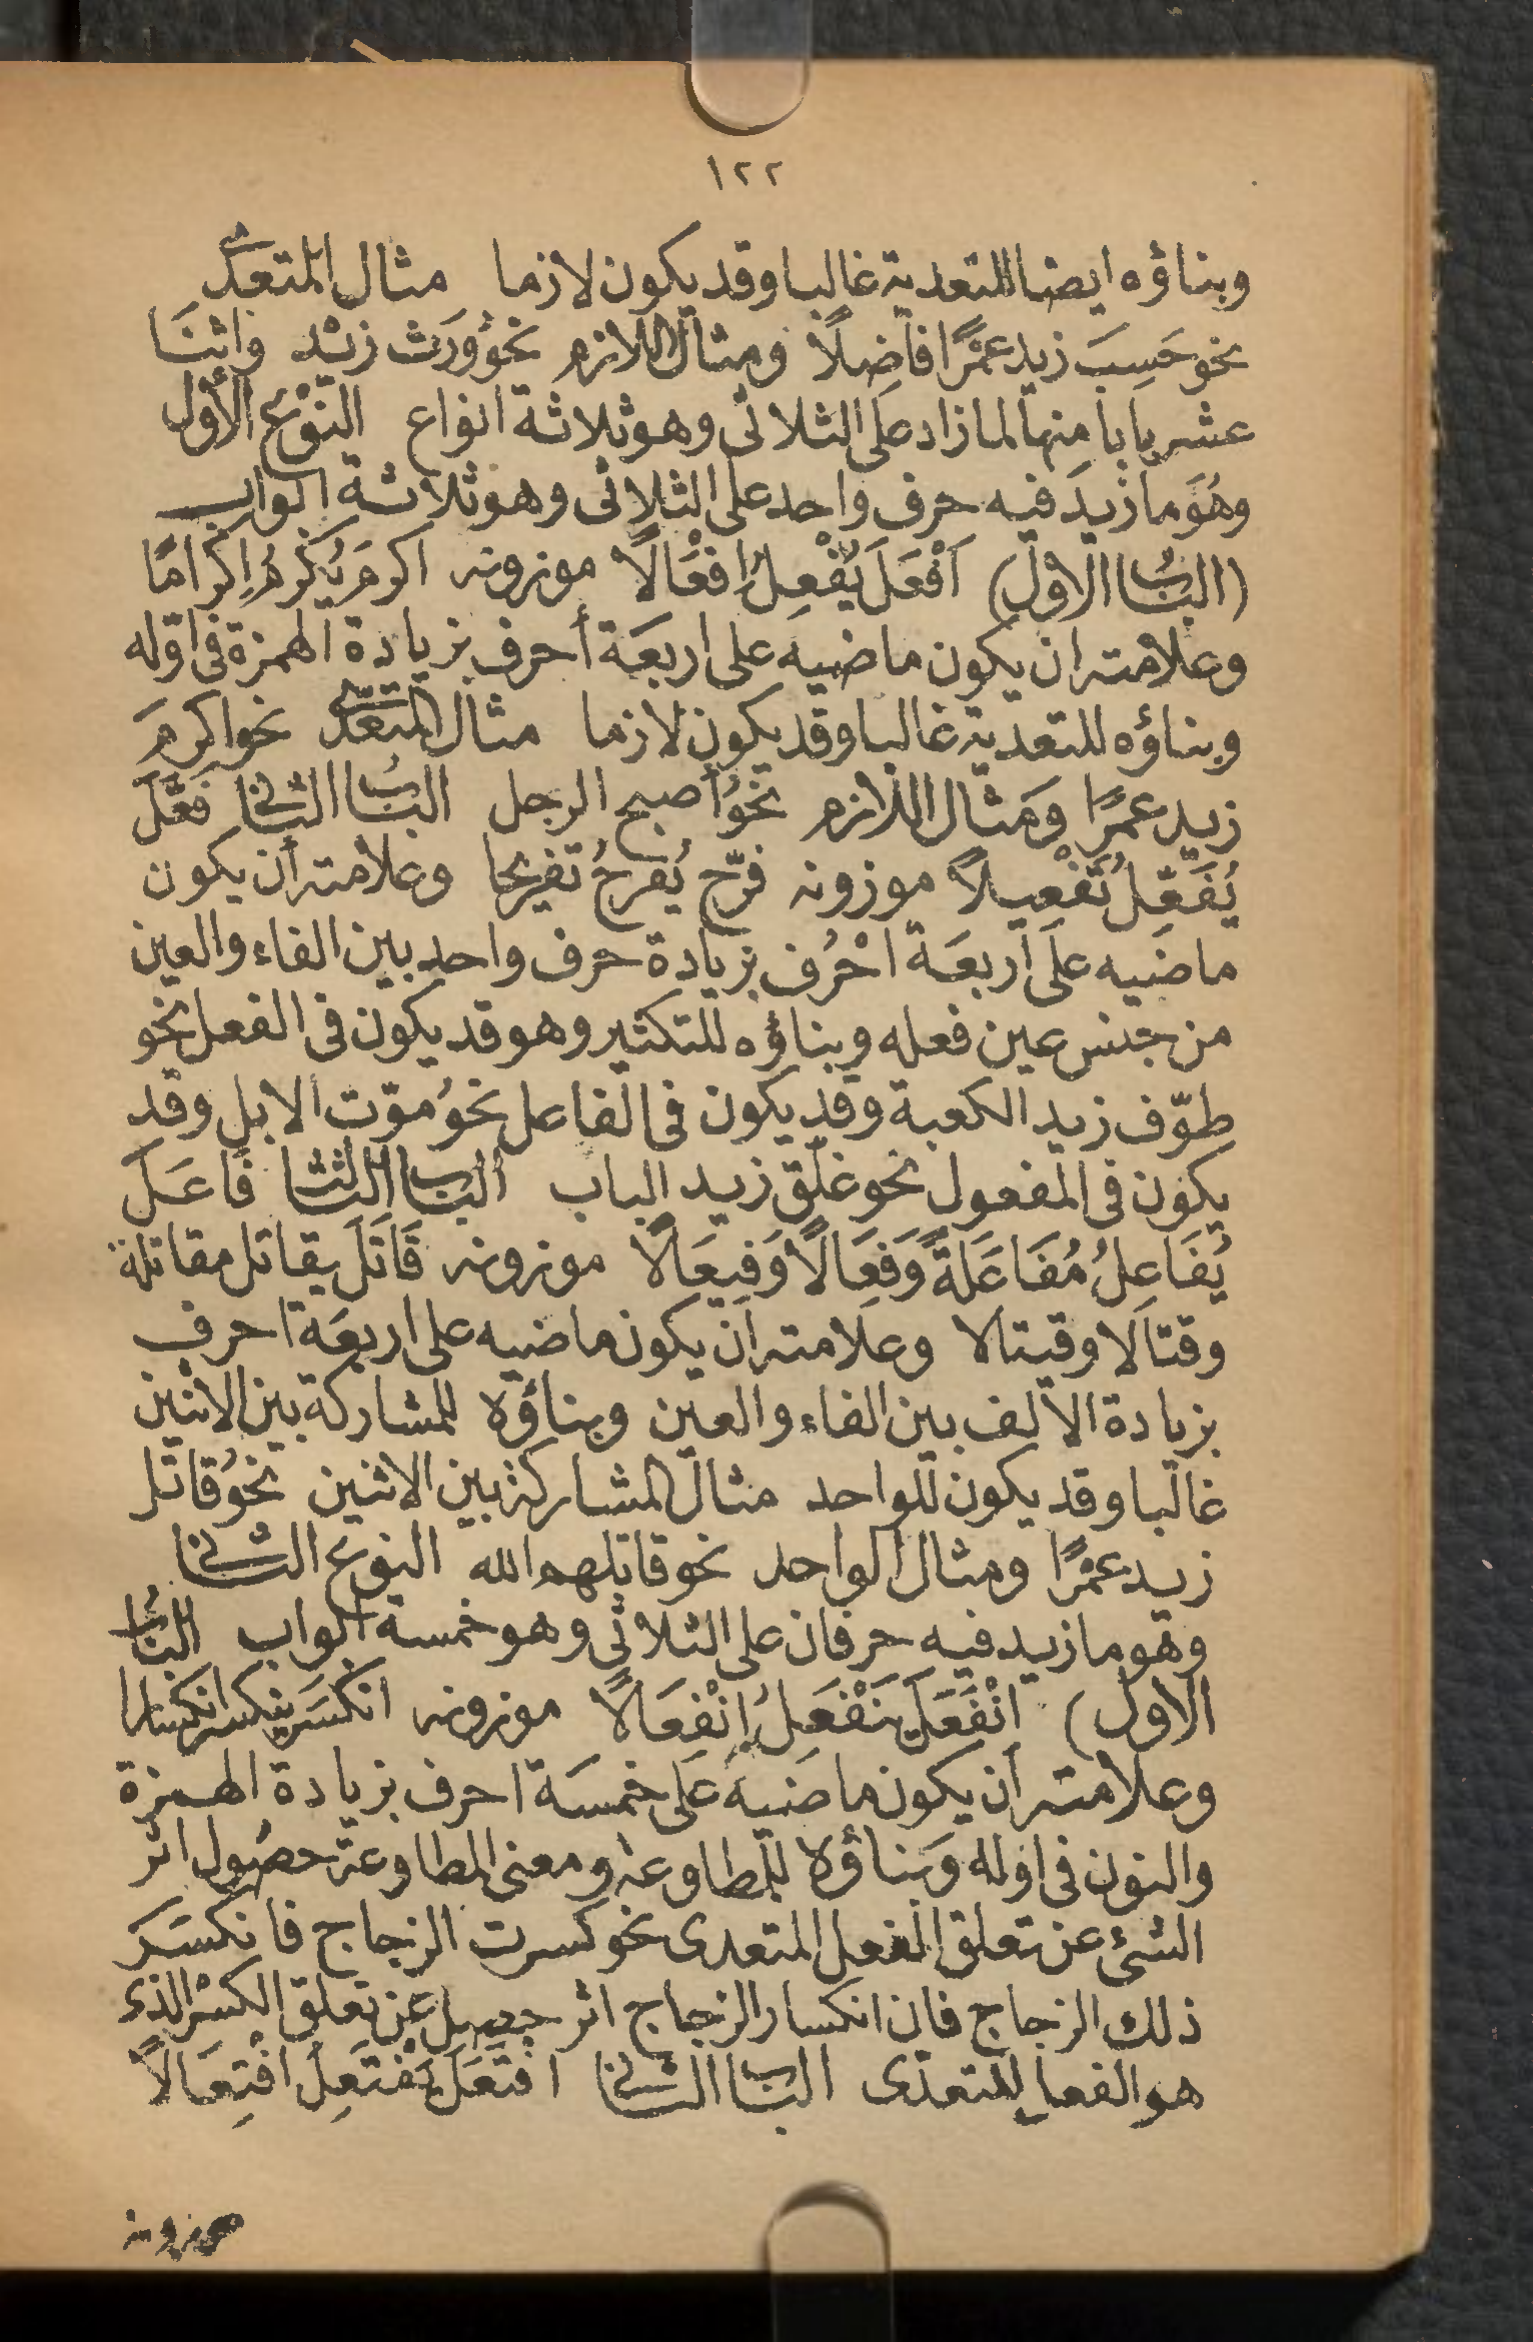 ١٢٢
وبناؤه ايضا للتعدية غالبا وقد يكون لازما مثال المتعدى
نحو حَسِبَ زيد عمرًا فاضِلًا ومثال اللازم نحو وَرِث زيد واثنَا
عشر بابا منها لما زاد على الثلاثى وهو ثلاثة انواع النوع الأول
وهُوَ ما زيدَ فيه حرف واحد على الثلاثى وهو ثلاثة ابواب
(الباب الاول) اَفْعَلَ يُفْعِلُ اِفْعَالًا موزونه اكرمَ يُكْرِمُ اِكرامًا
وعلامته ان يكون ماضيه على اربعَة أحرف بزيادة الهمزة فى اوّله
وبناؤه للتعدية غالبا وقد يكون لازما مثال المتعدّى نحو اكرمَ
زيد عمرًا ومَثال اللازم نحوُ أصبح الرجل البابُ الثانى فَعَّلَ
يُفَعِّلُ تَفْعِيلًا موزونه فرّح يُفرحُ تفريحا وعلامته أن يكون
ماضَيه على اَربعَة احْرُف بزيادة حرف واحد بين الفاء والعين
من جنس عين فعله وبناؤه للتكثير وهو قد يكون فى الفعل نحو
طوّف زيد الكعبة وقد يكون فى الفاعل نحوُ موّت الابل وقد
يكون فى المفعول نحو غلّق زيد الباب الباب الثالث فَاعَلَ
يُفَاعِلُ مُفَاعَلَةً وَفِعَالًا وَفِيعَالًا موزونه قَاتَلَ يقاتل مقاتلة
وقتالًا وقيتالا وعلامته ان يكون ماضيه على اربعَة احرف
بزيادة الألف بين الفاء والعين وبناؤه للمشاركة بين الاثنين
غالبا وقد يكون للواحد مثال المشاركة بين الاثنين نحوُ قاتل
زيد عمرًا ومثال الواحد نحو قاتلهم الله النوع الثانى
وهو ما زيد فيه حرفان على الثلاثى وهو خمسة ابواب البابُ
الاول) انْفَعَلَ يَنْفَعِلُ اِنْفِعَالًا موزونه انكسَر ينكسر انكسارا
وعلامته أن يكون ماضيه عَلى خمسَة احرف بزيادة الهمزة
والنون فى اوله وَبناؤه للمطاوعة ومعنى المطاوعة حصُول اثر
الشئ عن تعلق الفعل المتعدى نحو كسرت الزجاج فانكسَرَ
ذلك الزجاج فان انكسار الزجاج اثر حصل عَن تعلق الكسْر الذى
هو الفعل المتعدّى الباب الثانى افتَعَلَ يَفْتَعِلُ افْتِعَالًا
موزونه